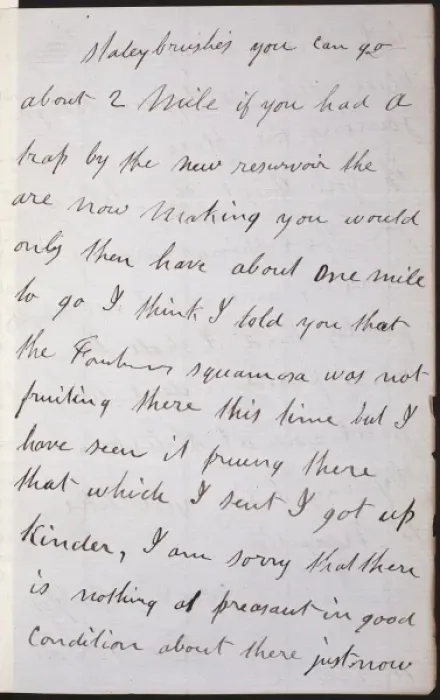 staleybrushes you can go
about 2 Mile if you had a
trap by the new reservoir the
are now Making you would
only then have about one mile
to go I think I told you that
the squamosa was not
fruiting there this time but I
have seen it there
that which I sent I got up
Kinder, I am sorry that there
is nothing at preasant in good
Condition about there just now